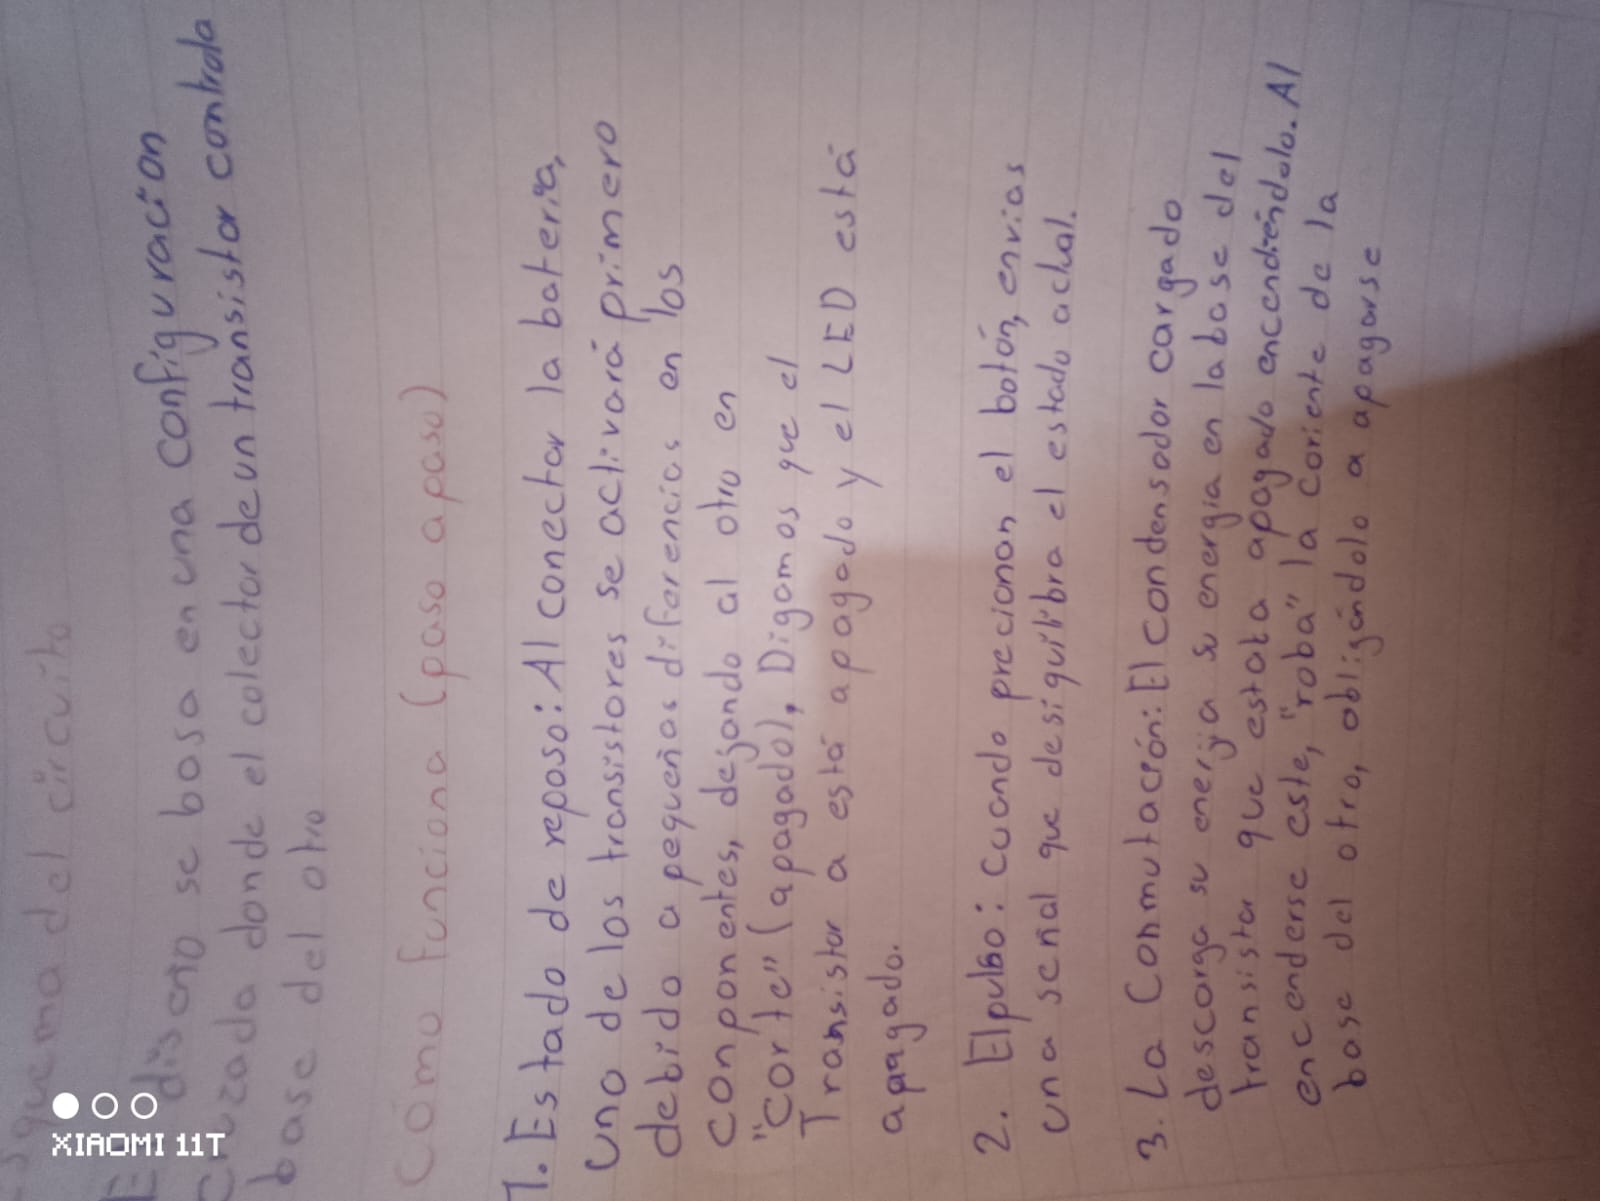 Esquema del circuito
El diseño se basa en una configuración
Cruzada donde el colector de un transistor controla
base del otro
Cómo funciona (paso a paso)
1. Estado de reposo: Al conectar la bateria,
uno de los transistores se activará primero
debido a pequeñas diferencias en los
conponentes, dejando al otro en
"corte" (apagado), Digamos que el
Transistor a está apagado y el LED está
apagado.
2. El pulso: cuando precionan el botón, envias
una señal que desiquilibra el estado actual.
3. La Conmutación: El condensador cargado
descarga su enerjia su energia en la base del
transistor que estaba apagado encendiéndolo. Al
encenderse este, "roba" la coriente de la
base del otro, obligándolo a apagarse
XIAOMI 11T